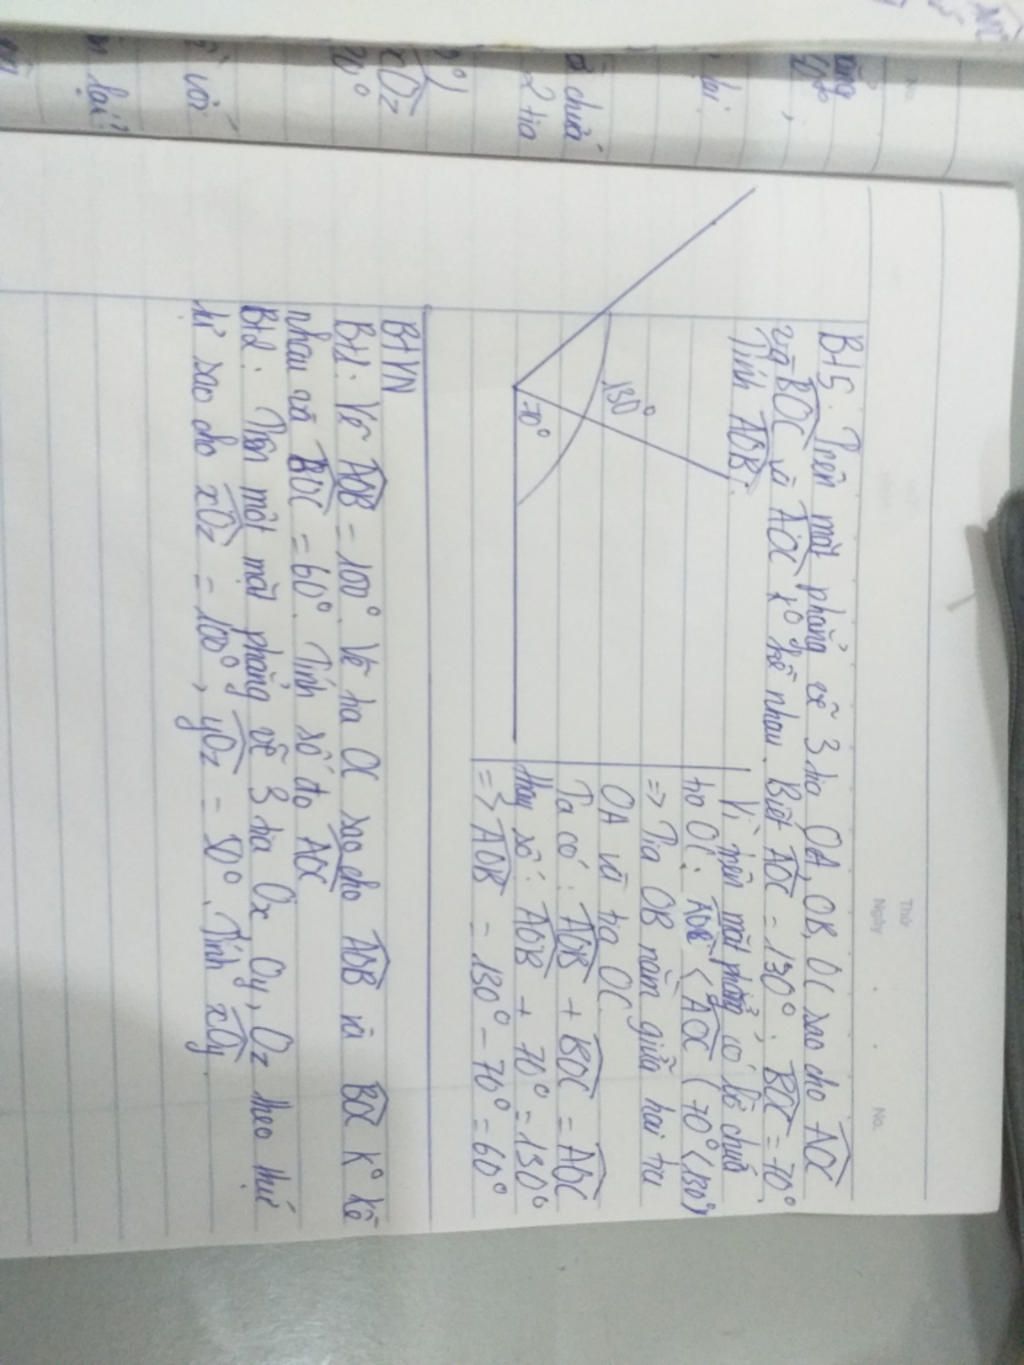 Thứ
Ngày . . No.
BH5. Trên mặt phẳng vẽ 3 tia OA, OB, OC sao cho AOC
và BOC và AOC k° kề nhau. Biết AOC = 130°. BOC = 70°
Tính AOB.
130°
70°
Vì trên mặt phẳng có bờ chứa
tia OC: AOB < AOC (70° < 130°)
=> Tia OB nằm giữa hai tia
OA và tia OC.
Ta có: AOB + BOC = AOC
thay số: AOB + 70° = 130°
=> AOB = 130° - 70° = 60°
BHVN
BH1. Vẽ AOB = 100°. Vẽ tia OC sao cho AOB và BOC k° kề
nhau và BOC = 60°. Tính số đo AOC
BH2. Trên một mặt phẳng vẽ 3 tia Ox, Oy, Oz theo thứ
tự sao cho xOz = 100°, yOz = 50°. Tính xOy.
chứa
2 tia
xOz
70°
với
lại?